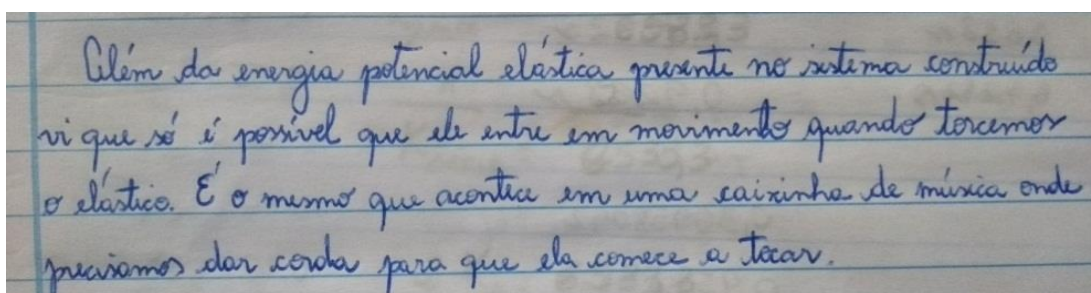 Além da energia potencial elástica presente no sistema construído
vi que só é possível que ele entre em movimento quando torcemos
o elástico. É o mesmo que acontece em uma caixinha de música onde
precisamos dar corda para que ela comece a tocar.